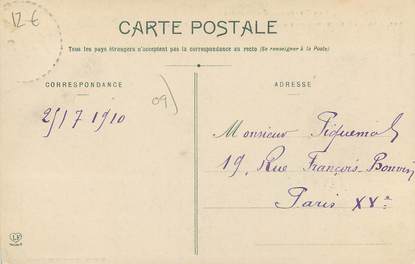 12 €
CARTE POSTALE
Tous les pays étrangers n'acceptent pas la correspondance au recto (Se renseigner à la Poste)
CORRESPONDANCE
ADRESSE
09)
25/7 1910
Monsieur Piquemal
19, Rue François-Bonvin
Paris XVe